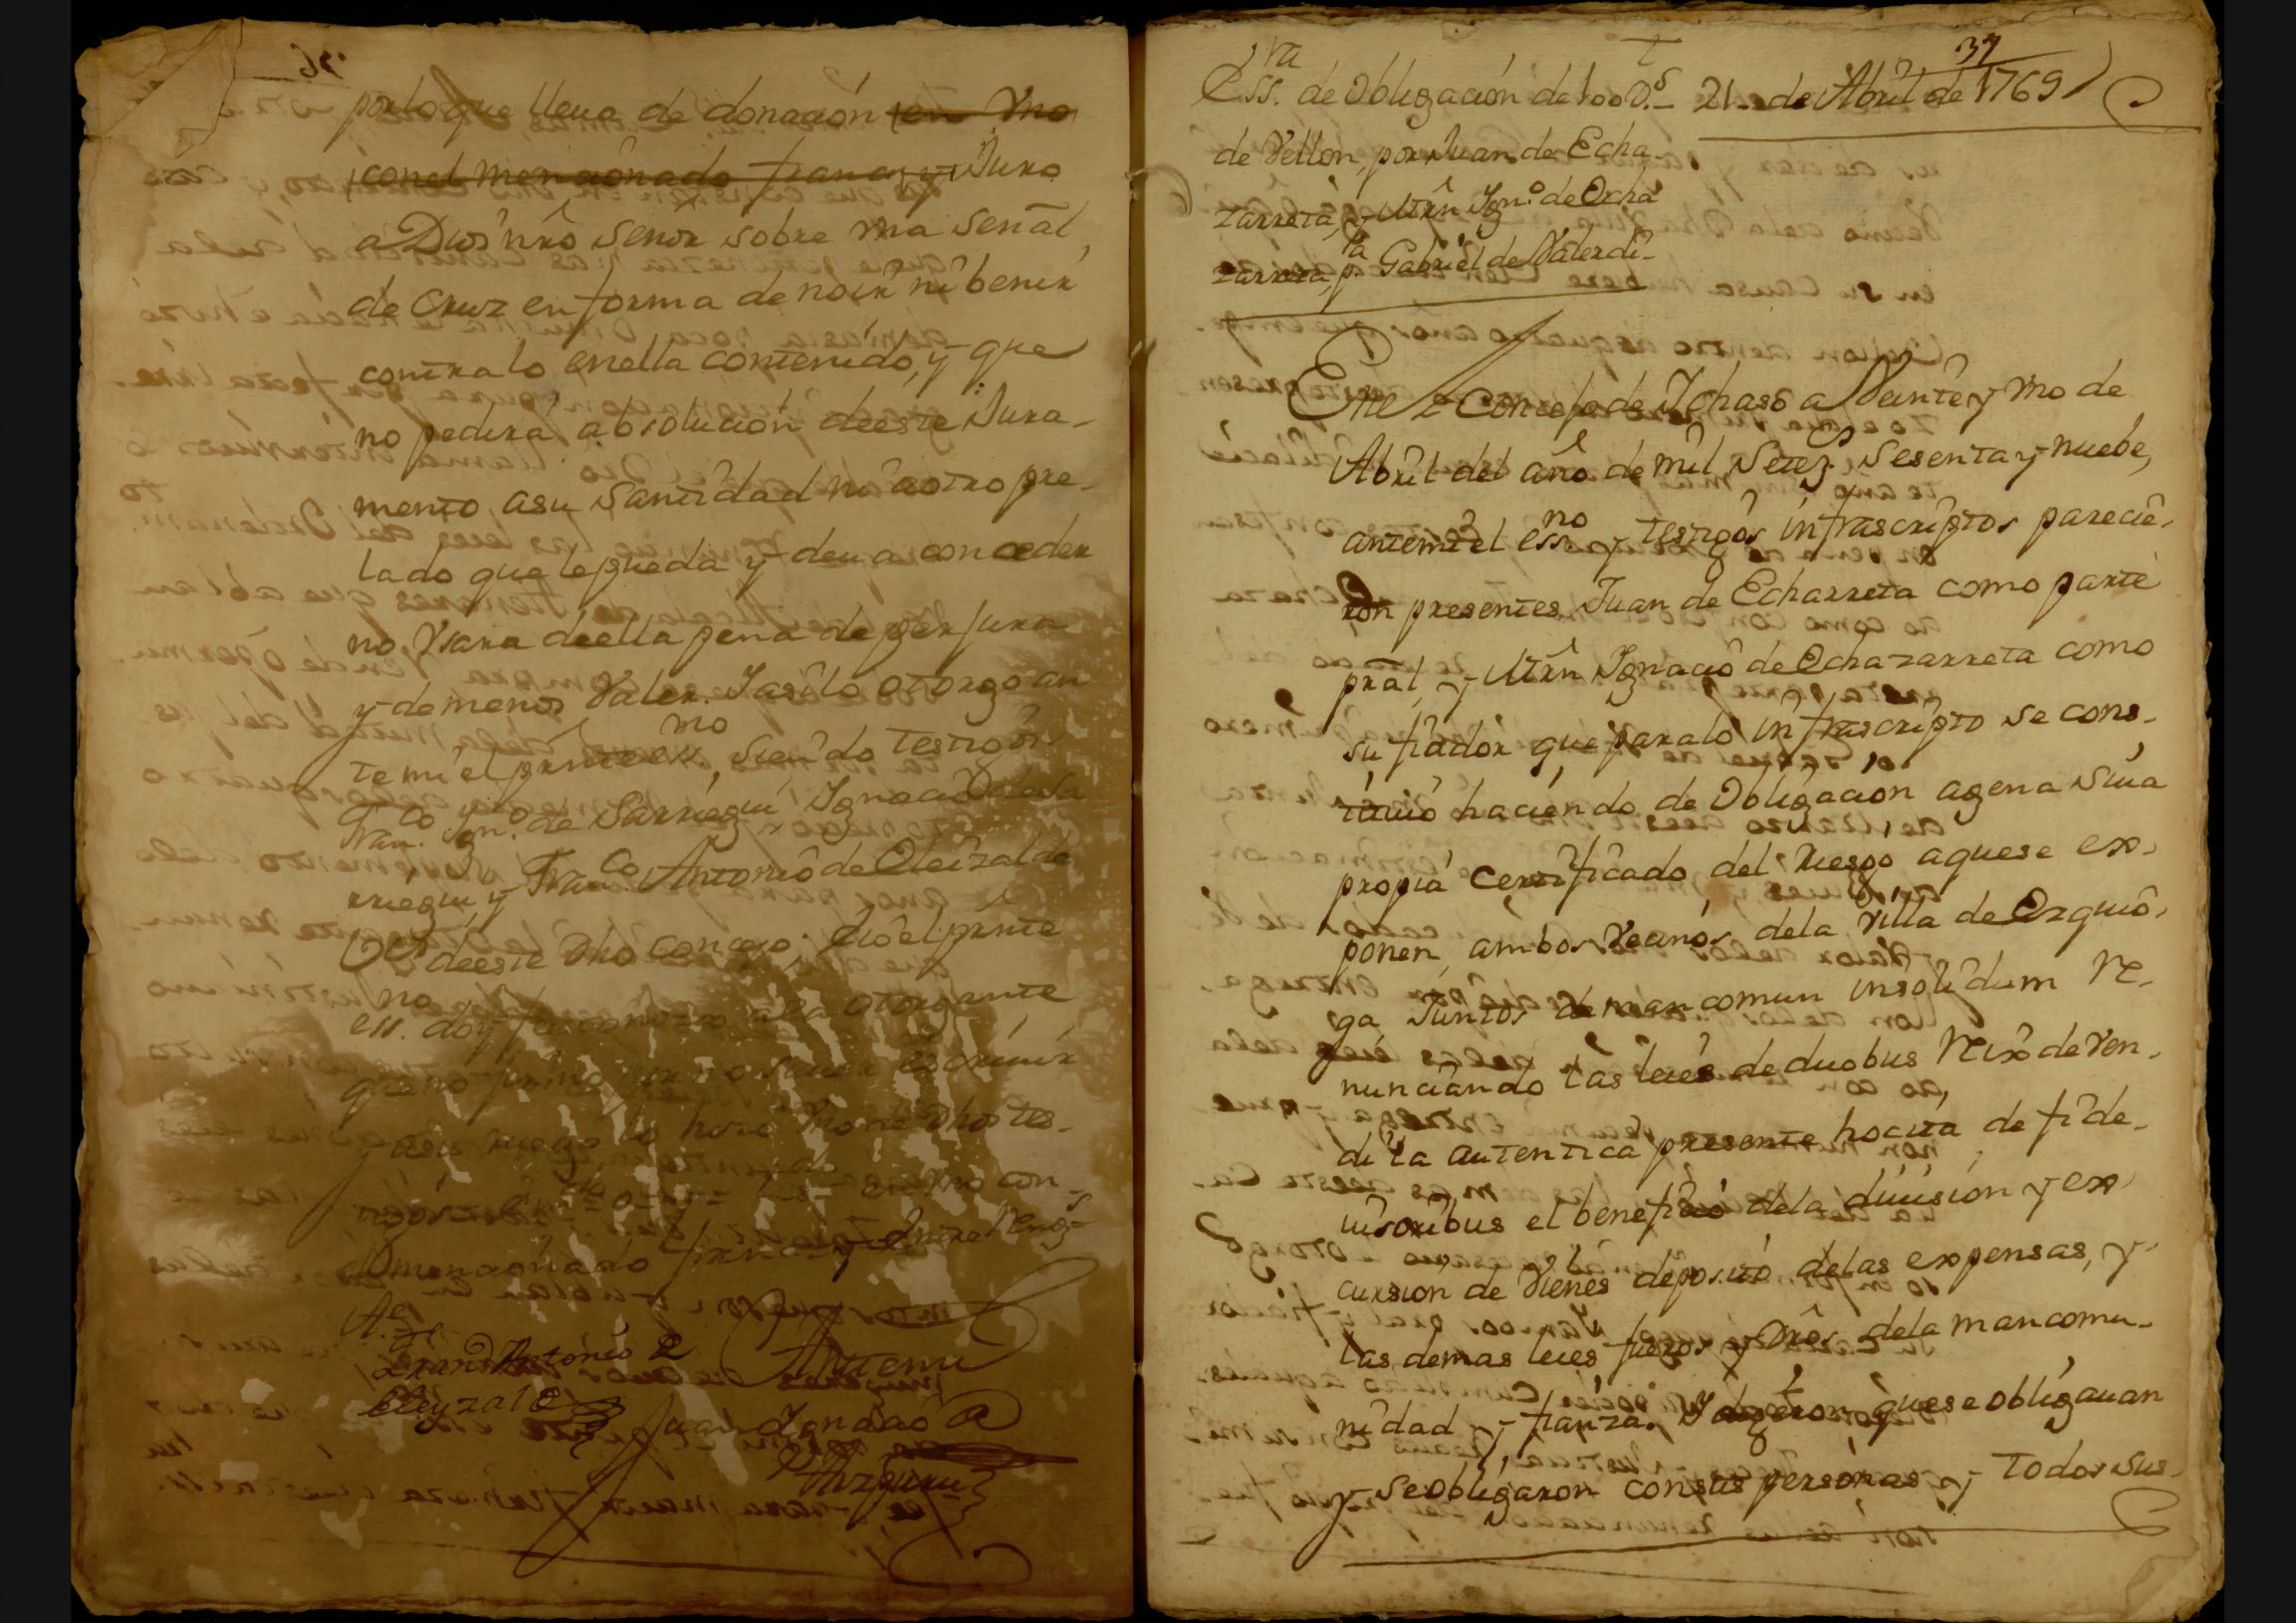 36
por lo que lleua de donacion en vno
con el mencionado franco, y Juro
a Dios nrô Senor sobre vna Señal
de Cruz en forma de no ir ni benir
contra lo en ella contenido, y que
no pedira absolucion de este Jura-
mento a su Santidad ni a otro pre-
lado que le pueda y deua conceder
no vsara de ella pena de perjura
y de menos Valer. I asi lo otorgo an
te mi el prnte essno, siendo testigos
Franco Ignº de Sarriegui Ignacio de Sa
rriegui y Franco Antonio de Oleizalde
de este dho Concejo; Elo el prnte
essno doy fee conozco a la otorgante
que no firmo por no sauer escriuir
y a su ruego lo hizo vno de dhos tes-
tigos
mencionado franco y Entre Rengs
Franco Antonio de
Eleyzalde
Antemi
Juan Ignacio de
37
Essra de Obligacion de 100 Ds 21 de Abril de 1769
de Vellon, por Juan de Echa-
rreta, y Mrn Ignº de Ocha
zarreta, pa Gabriel de Valerdi
En el Concejo de Ichaso a Veinte y vno de
Abril del año de mil Setez.s Sesenta y nuebe,
ante mi el essno y testigos infrascriptos parecie-
ron presentes Juan de Echarreta como parte
pral, y Mrn Ignacio de Ochazarreta como
su fiador que para lo infrascripto se cons-
tituio haciendo de Obligacion agena Suia
propia certificado del riesgo a que se ex-
ponen, ambos Vecinos de la Villa de Ozquio-
ga, Juntos de mancomun insolidum Re-
nunciando las leies de duobus Rex de Ven-
di la autentica presente hocita de fide-
iusoribus el beneficio de la diuision y ex-
cursion de Vienes deposito de las expensas, y
las demas leies fueros y Dros. de la mancomu-
nidad y fianza. I dixeron que se obligauan
y Se obligaron con sus personas y todos sus